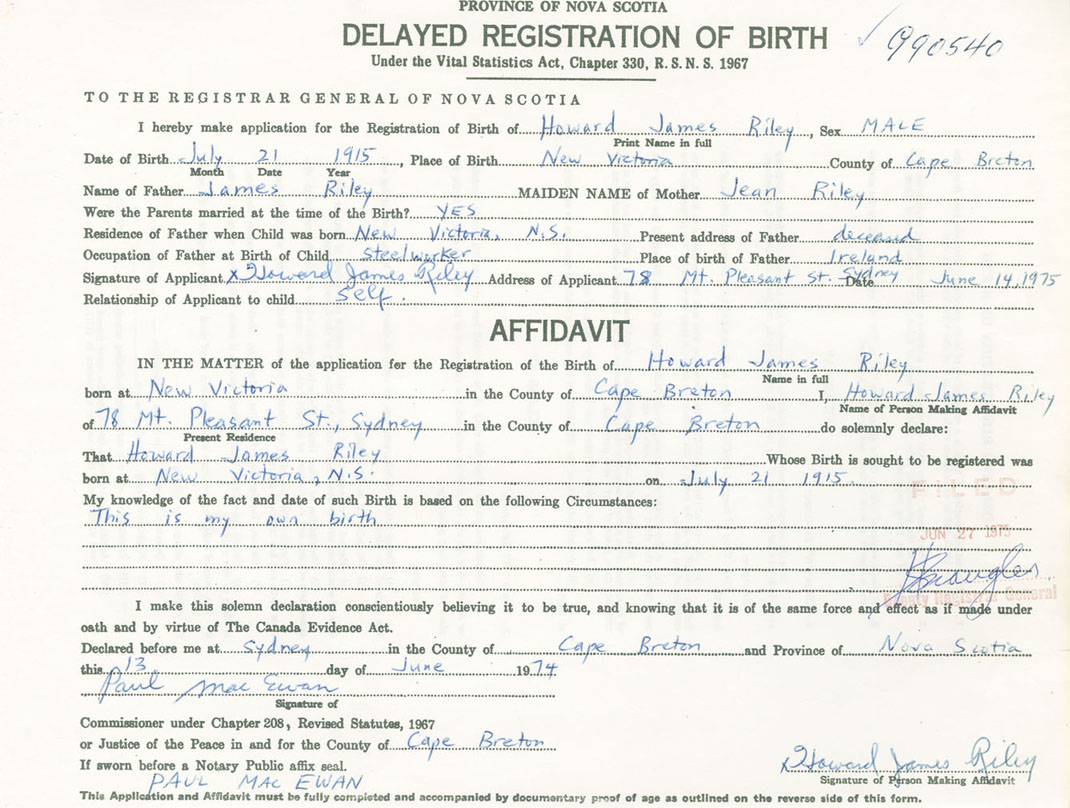 PROVINCE OF NOVA SCOTIA
DELAYED REGISTRATION OF BIRTH
990540
Under the Vital Statistics Act, Chapter 330, R. S. N. S. 1967
TO THE REGISTRAR GENERAL OF NOVA SCOTIA
I hereby make application for the Registration of Birth of Howard James Riley, Sex MALE
Print Name in full
Date of Birth July 21 1915, Place of Birth New Victoria County of Cape Breton
Month Date Year
Name of Father James Riley MAIDEN NAME of Mother Jean Riley
Were the Parents married at the time of the Birth? YES
Residence of Father when Child was born New Victoria, N.S. Present address of Father deceased
Occupation of Father at Birth of Child steelworker Place of birth of Father Ireland
Signature of Applicant x Howard James Riley Address of Applicant 78 Mt. Pleasant St. Sydney June 14, 1975
Date
Relationship of Applicant to child self.
AFFIDAVIT
IN THE MATTER of the application for the Registration of the Birth of Howard James Riley
Name in full
born at New Victoria in the County of Cape Breton I, Howard James Riley
Name of Person Making Affidavit
of 78 Mt. Pleasant St., Sydney in the County of Cape Breton do solemnly declare:
Present Residence
That Howard James Riley Whose Birth is sought to be registered was
born at New Victoria, N.S. on July 21 1915.
My knowledge of the fact and date of such Birth is based on the following Circumstances:
FILED
This is my own birth
JUN 27 1975
Deputy Registrar General
I make this solemn declaration conscientiously believing it to be true, and knowing that it is of the same force and effect as if made under
oath and by virtue of The Canada Evidence Act.
Declared before me at Sydney in the County of Cape Breton and Province of Nova Scotia
this 13 day of June 1974
Paul Mac Ewan
Signature of
Commissioner under Chapter 208, Revised Statutes, 1967
or Justice of the Peace in and for the County of Cape Breton
If sworn before a Notary Public affix seal.
x Howard James Riley
PAUL MAC EWAN
Signature of Person Making Affidavit
This Application and Affidavit must be fully completed and accompanied by documentary proof of age as outlined on the reverse side of this form.